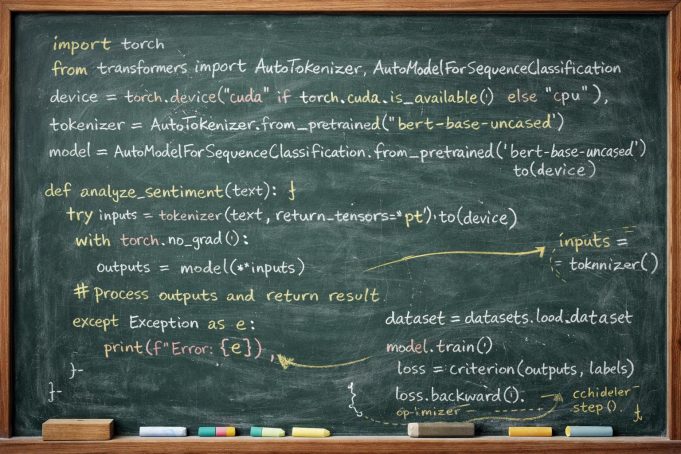 import torch
from transformers import AutoTokenizer, AutoModelForSequenceClassification
device = torch.device("cuda" if torch.cuda.is_available() else "cpu"),
tokenizer = AutoTokenizer.from_pretrained("bert-base-uncased')
model = AutoModelForSequenceClassification.from_pretrained('bert-base-uncased')
to(device)
def analyze_sentiment(text): {
try inputs = tokenizer(text, return_tensors="pt').to(device)
with torch.no_grad():
outputs = model(**inputs)
# Process outputs and return result
except Exception as e:
print(f"Error: {e}"),
}-
}-
inputs =
= toknnizer()
dataset = datasets.load.dataset
model.train()
loss = criterion(outputs, labels)
loss.backward().
op-imizer
cchideler
step().